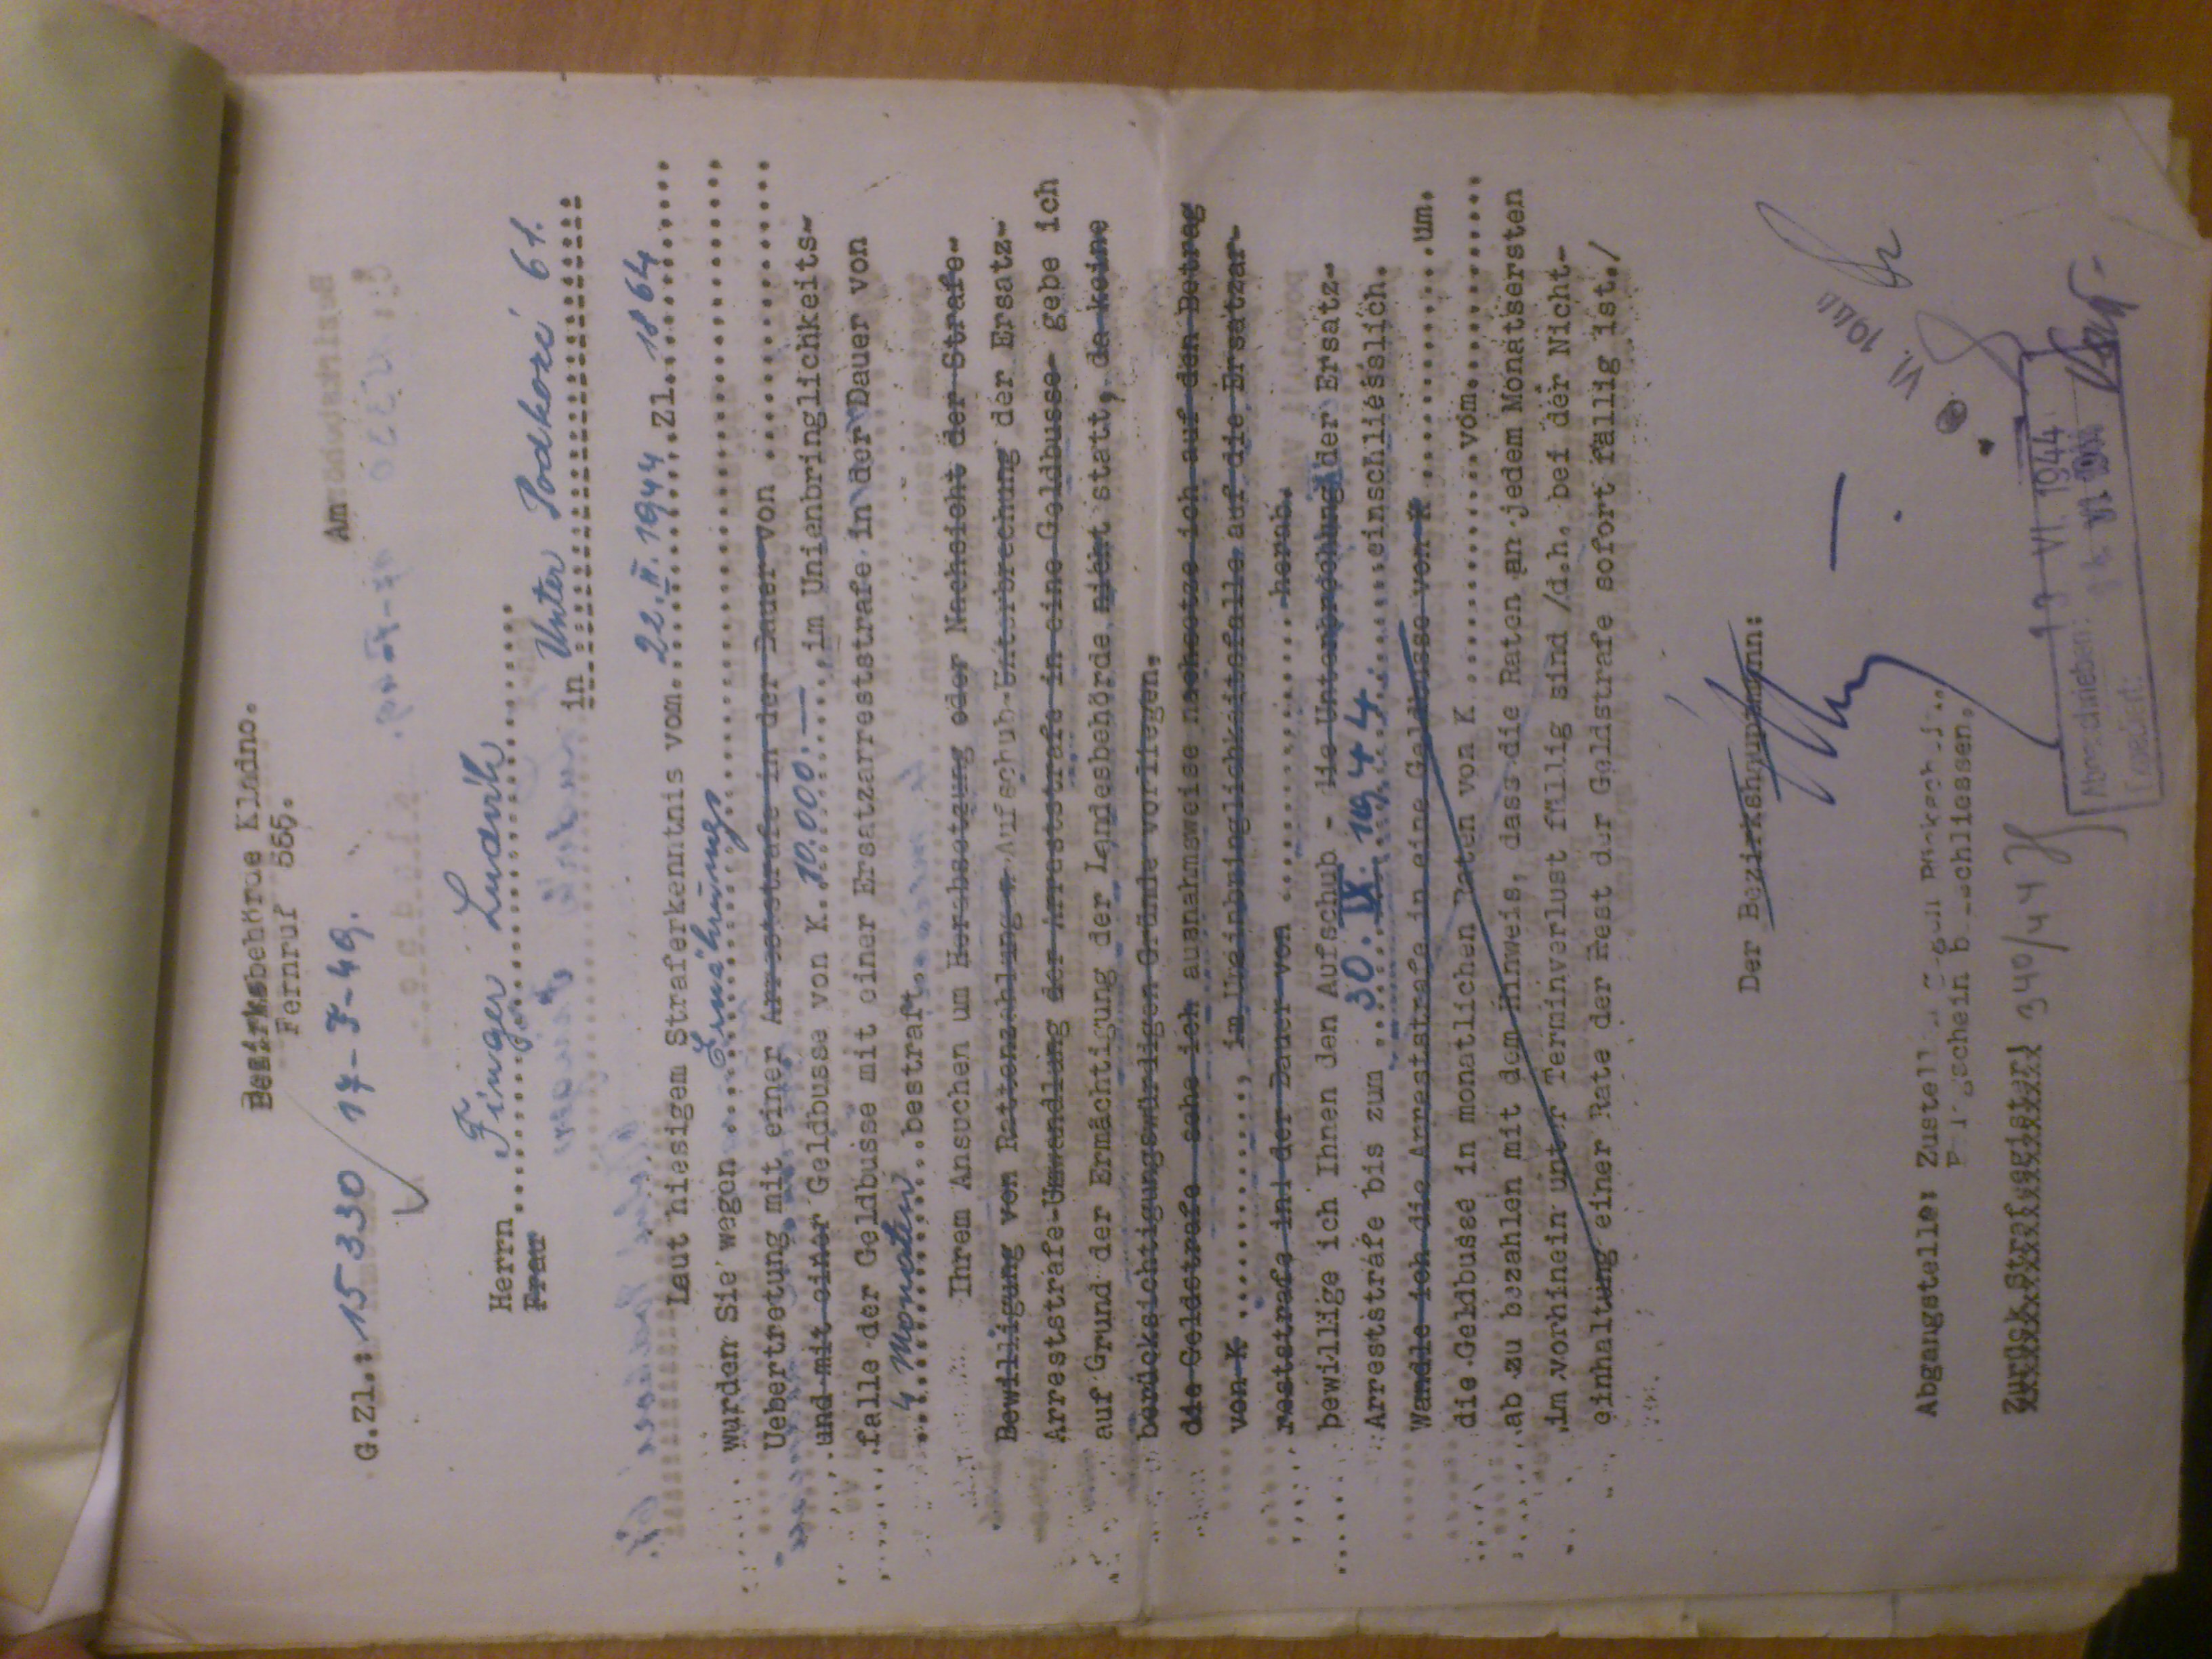 Bezirksbehörde Kladno.
Fernruf 555.
G.Zl.: 15 330 / 17-F-49.
Am
Herrn Finger Ludvík
Frau
in Unter Podkozí 61.
Laut hiesigem Straferkenntnis vom. 22. II. 1944 Zl. 1864
wurden Sie wegen Ernährungs
Uebertretung mit einer Arreststrafe in der Dauer von
und mit einer Geldbusse von K. 10.000.— ,im Unienbringlichkeits-
falle der Geldbusse mit einer Ersatzarreststrafe in der Dauer von
4 Monaten bestraft.
Ihrem Ansuchen um Herabsetzung oder Nachsicht der Strafe-
Bewilligung von Rattenzahlungen Aufschub-Unterbrechung der Ersatz-
Arreststrafe-Umwandlung der Arreststrafe in eine Geldbusse- gebe ich
auf Grund der Ermächtigung der Landesbehörde nicht statt, da keine
berücksichtigungswürdigen Gründe vorliegen.
die Geldstrafe sehe ich ausnahmsweise nachsetze ich auf den Betrag
von K ............., im Uneinbringlichkeitsfalle auf die Ersatzar-
reststrafe in der Dauer von ................. herab.
bewillige ich Ihnen den Aufschub - die Unterbrechung der Ersatz-
Arreststrafe bis zum 30. IX. 1944. einschliesslich.
Wandle ich die Arreststrafe in eine Geldbusse von K .............um.
die Geldbusse in monatlichen Raten von K .............vom............
ab zu bezahlen mit dem Hinweis, dass die Raten an jedem Monatsersten
im vorhinein unter Terminverlust fällig sind /d.h. bei der Nicht-
einhaltung einer Rate der Rest der Geldstrafe sofort fällig ist./
Der Bezirkshauptmann:
VI. 1944
Abgangstelle: Zustell gegen Rückschein.
schliessen.
Zurück Strafregister!
340/44
VI. 1944
Abgeschrieben:
VI. 1944
Expediert: